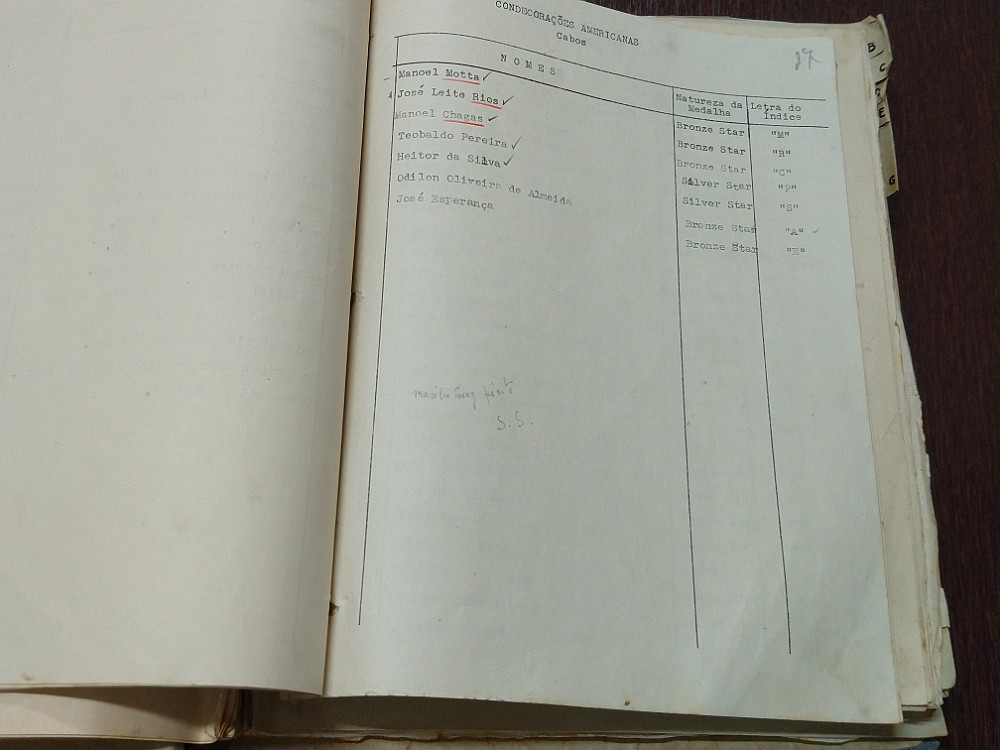 CONDECORAÇÕES AMERICANAS
Cabos
37
NOMES Natureza da Medalha Letra do Índice
Manoel Motta ✓ Bronze Star "M"
José Leite Rios ✓ Bronze Star "R"
Manoel Chagas ✓ Bronze Star "C"
Teobaldo Pereira ✓ Silver Star "P"
Heitor da Silva ✓ Silver Star "S"
Odilon Oliveira de Almeida Bronze Star "A" ✓
José Esperança Bronze Star "E"
S.S.
B
C
E
G